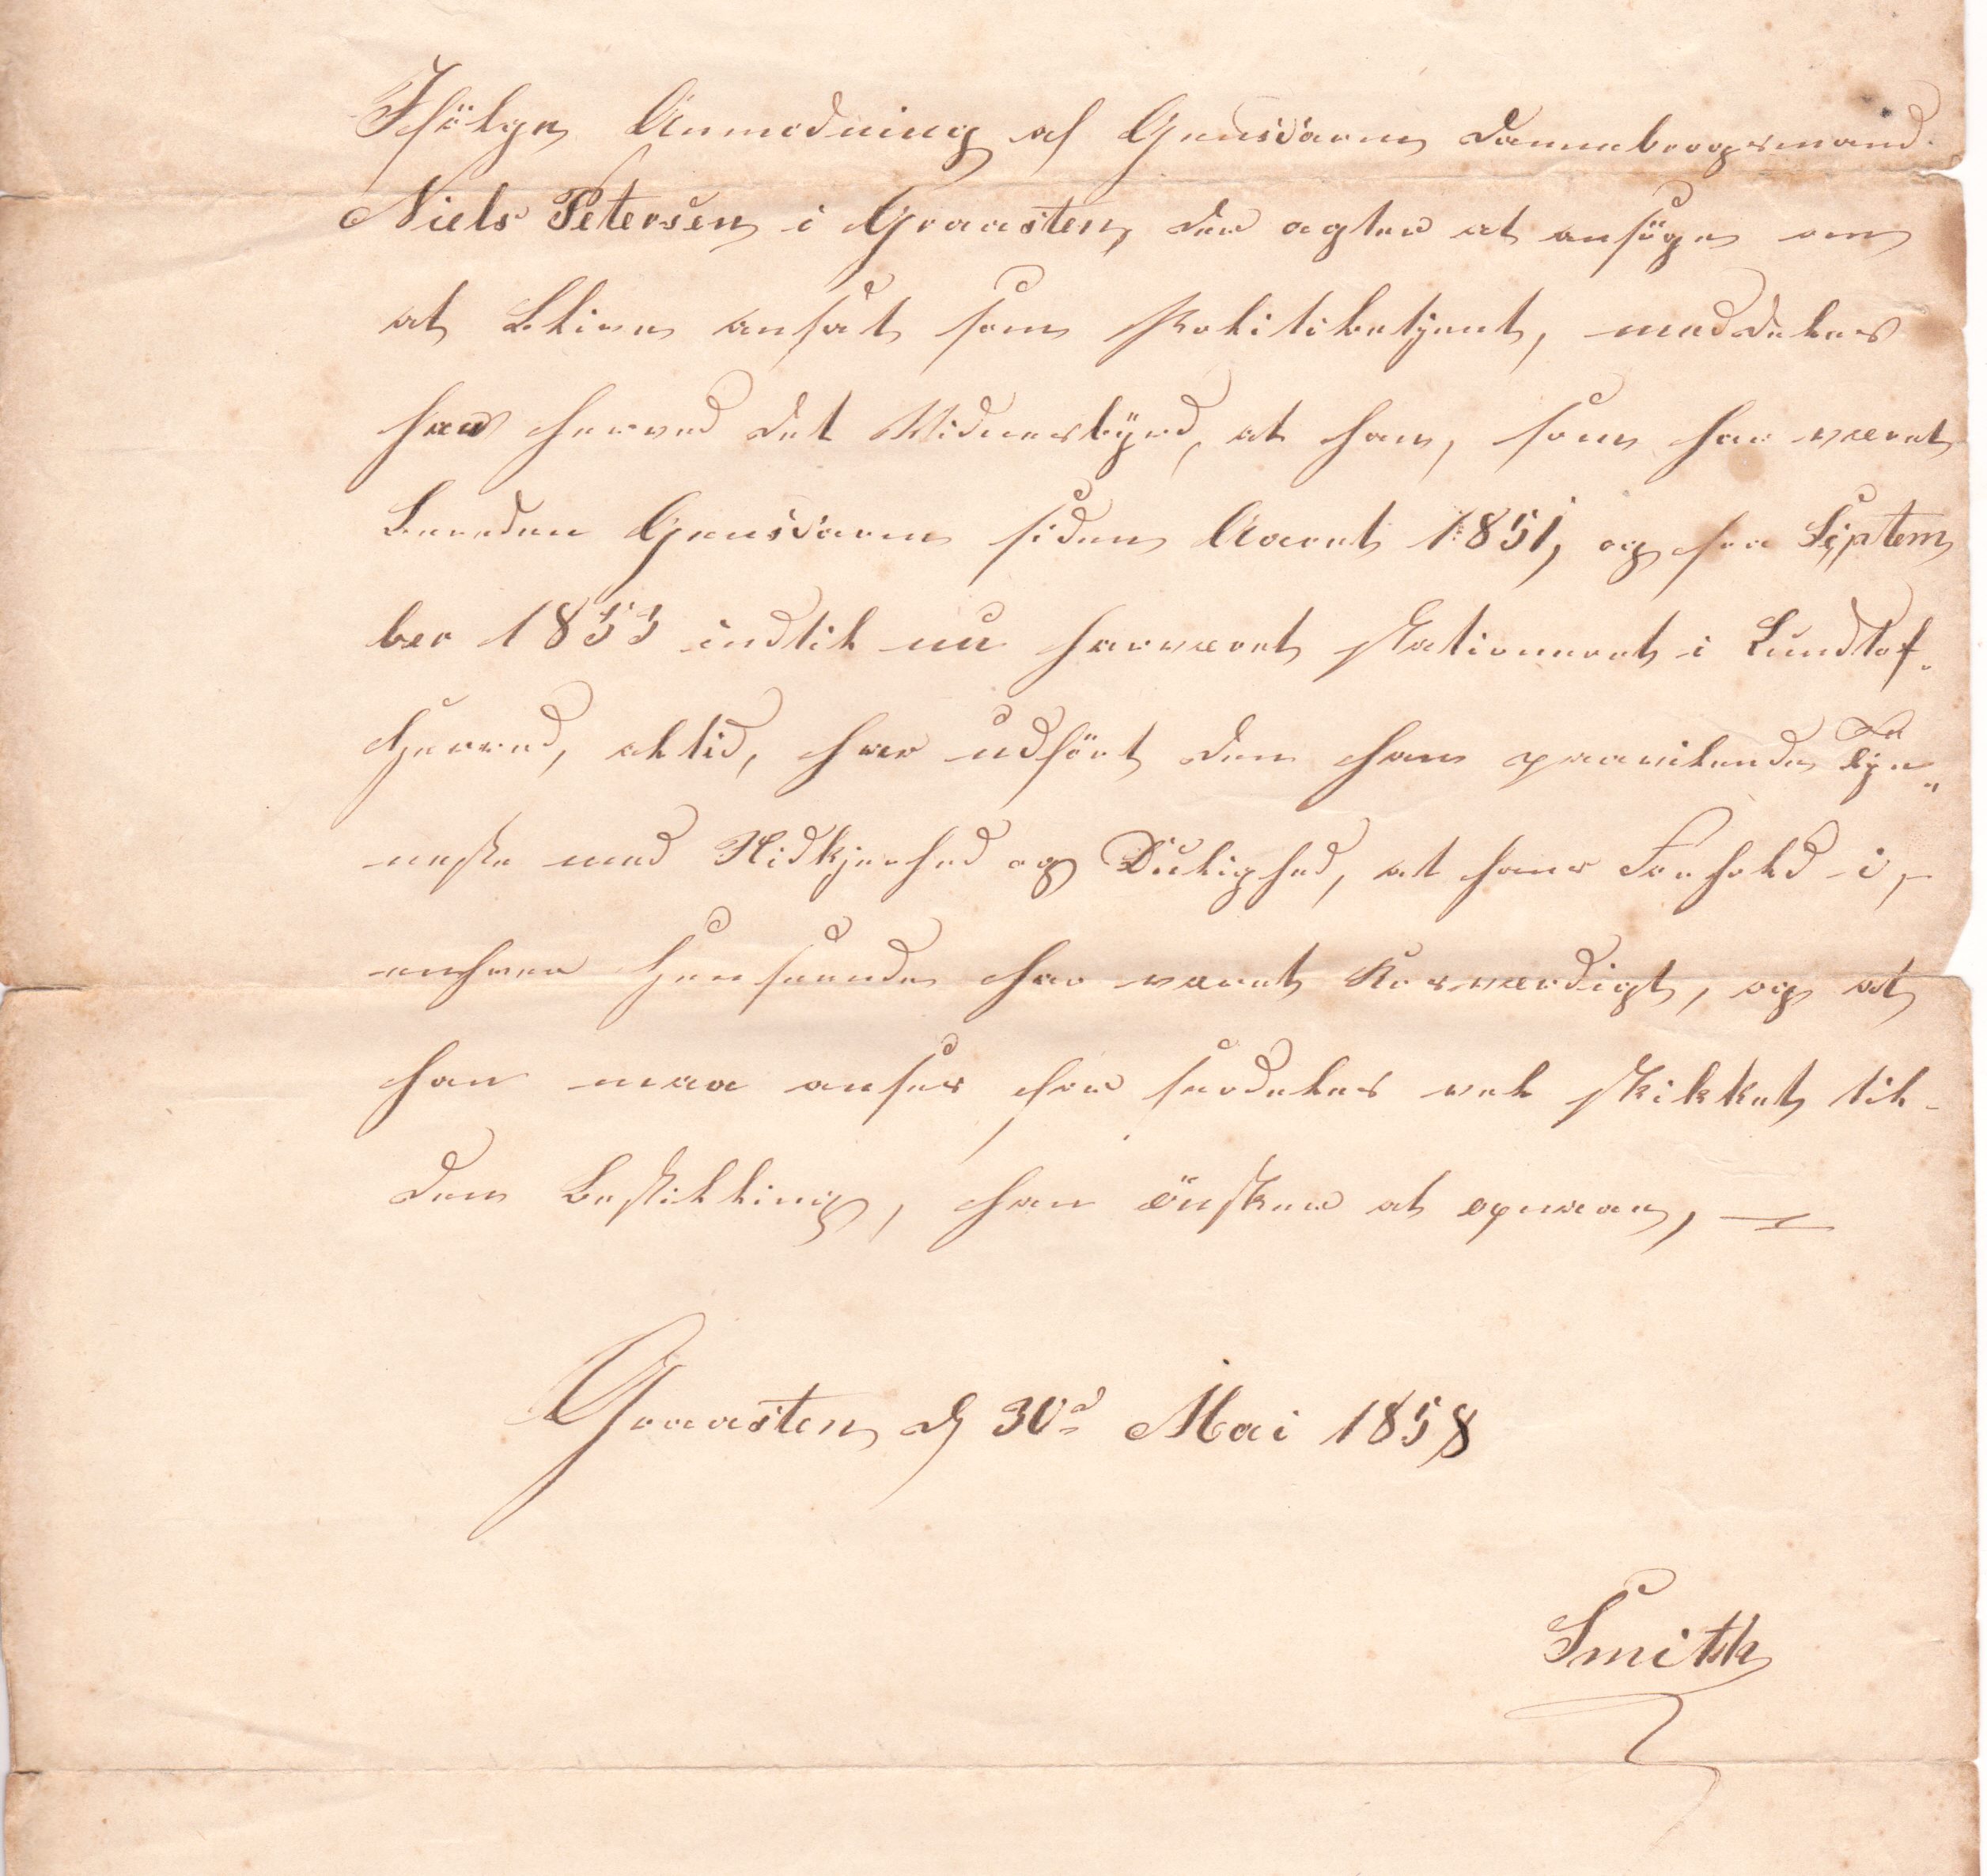 Ifölge Anmodning af Gensdarm Dannebrogsmand
Niels Petersen i Graasten, der agter at ansöge om
at blive ansat som Politibetjent, meddeles
ham herved det Vidnesbyrd, at han, som har været
bereden Gensdarm siden Aaret 1851, og fra Septem
ber 1853 indtil nu har været stationeret i Lundtof-
Herred, altid, har udfört den ham paahvilende Tje„
neste med Nidkjerhed og Duelighed, at hans Forhold i,
enhver Henseende har været rosværdigt, og at
han maa anses for særdeles vel skikket til
den Bestilling, han önsker at opnaae,
Graasten d 30d Mai 1858
Smith